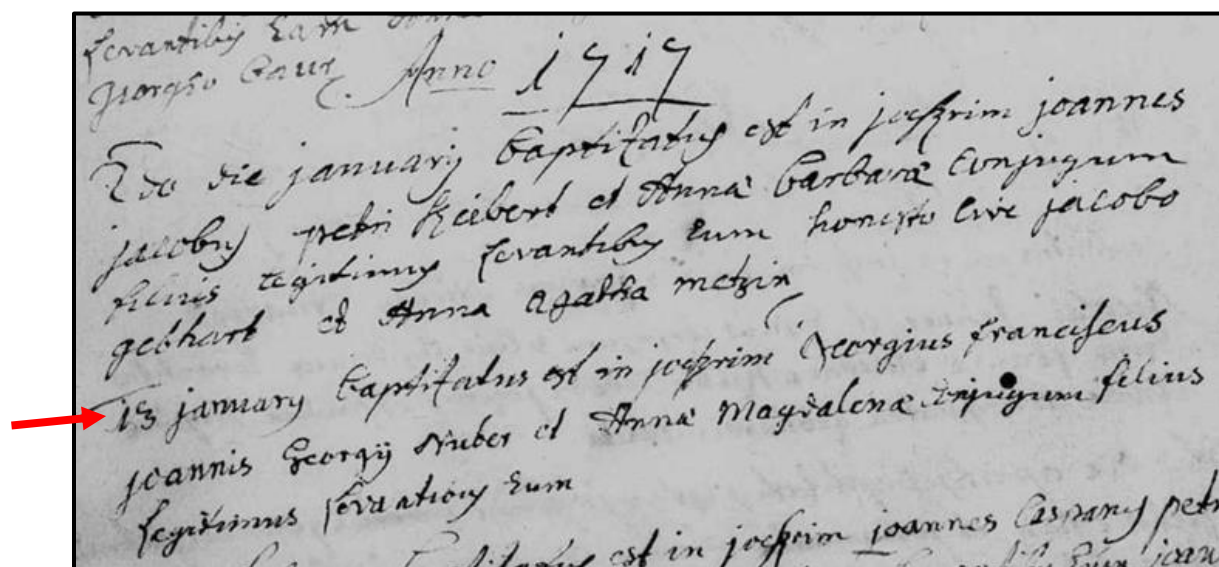 levantibus eam
georgio baur Anno 1717
2do die januarij baptizatus est in jockrim joannes
jacobus petri Kiebert et Annæ barbaræ conjugum
filius legitimus levantibus eum honesto cive jacobo
gebhart et Anna agatha metzin
13 january baptizatus est in jockrim Georgius franciscus
joannis Georgij Huber et Annæ Magdalenæ conjugum filius
legitimus levantibus eum
est in jockrim joannes Casparus petri